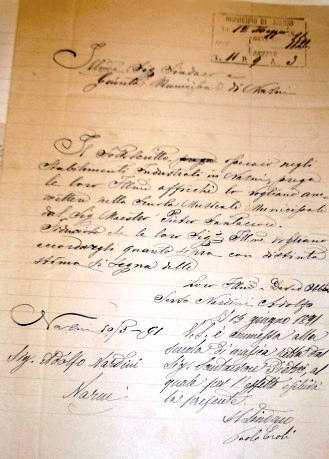 MUNICIPIO DI NARNI
Illmo Sig. Sindaco e
Giunta Municipale di Narni
Il Sottoscritto, operaio negli
Stabilimenti Industriali in Narni, prega
le loro Illme affinché lo vogliano am-
mettere nella Scuola Musicale Municipale
del Sig. Maestro Pietro
Fiducioso che le loro Sigrie Illme vogliano
accordargli quanto sopra con distinta
stima si segna delle
Loro Illme
Servo Nardini Adolfo
Narni 10/5-91
Sig. Adolfo Nardini
Narni
13 giugno 1891
V.S. è ammessa alla
scuola di
Sig. Santacroce Pietro, al
quale per l'effetti esibirà
la presente
Il Sindaco